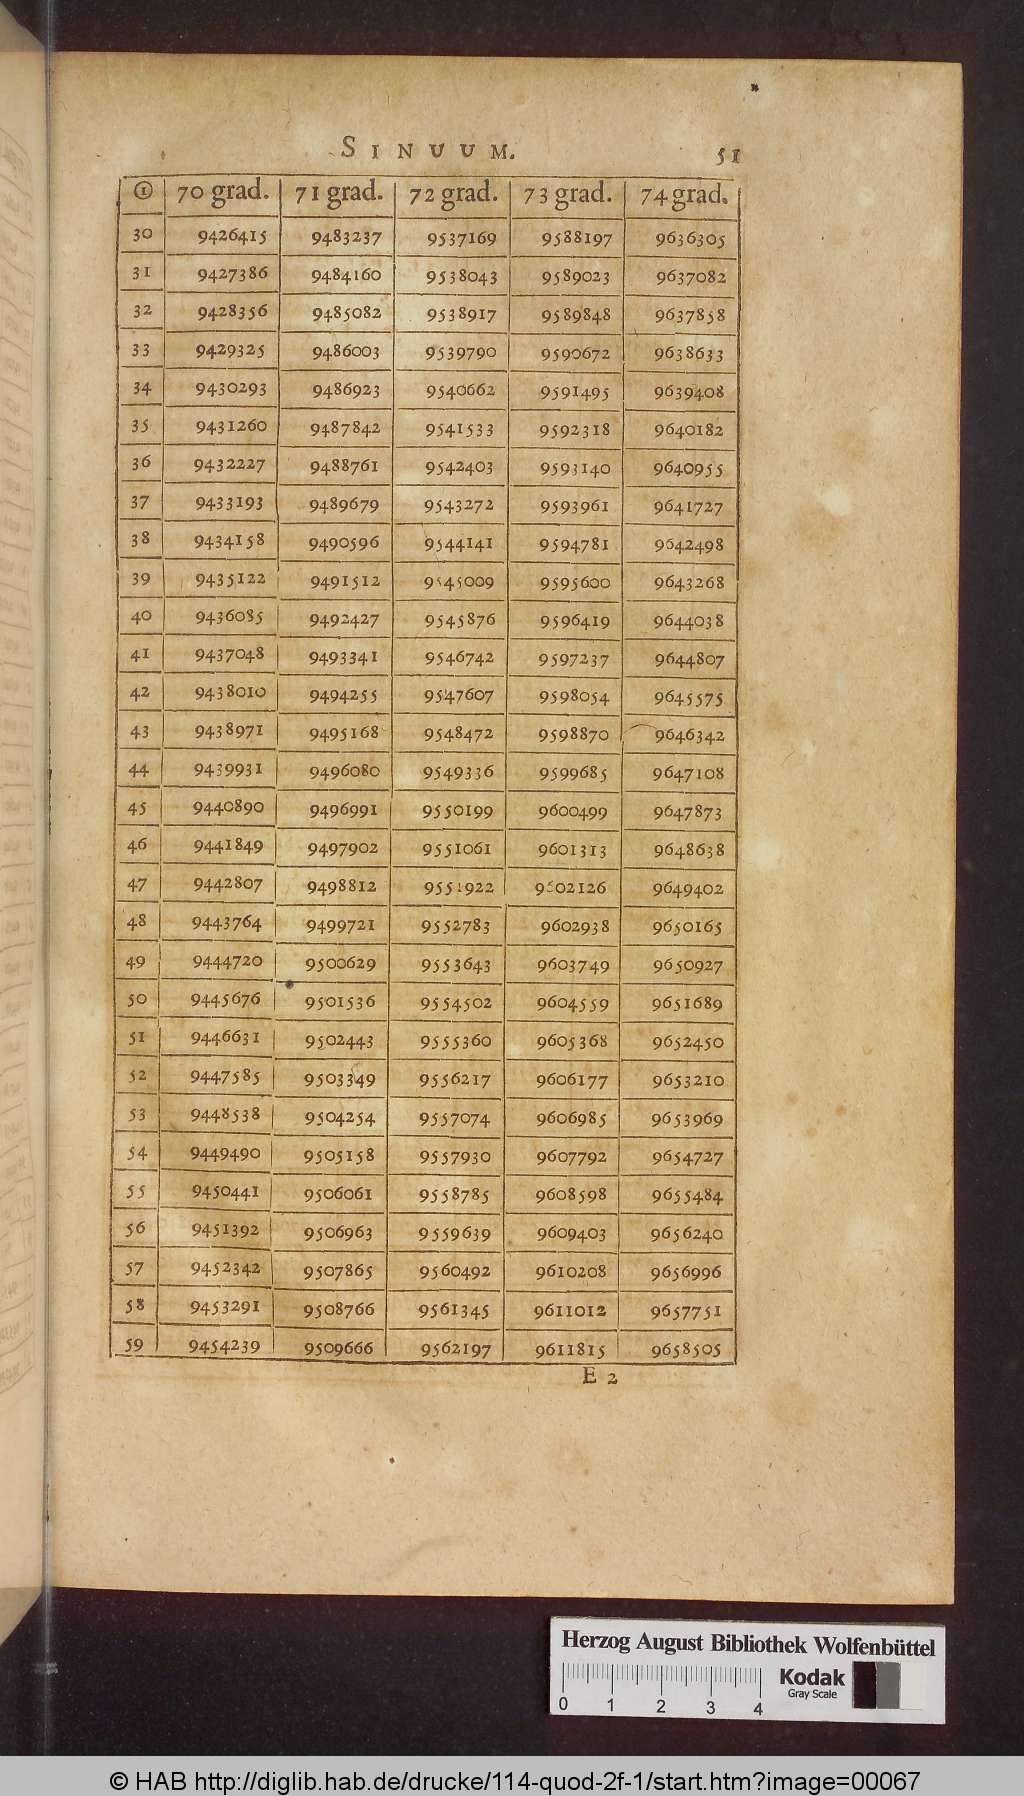 SINUUM. 51
① 70 grad. 71 grad. 72 grad. 73 grad. 74 grad.
30 9426415 9483237 9537169 9588197 9636305
31 9427386 9484160 9538043 9589023 9637082
32 9428356 9485082 9538917 9589848 9637858
33 9429325 9486003 9539790 9590672 9638633
34 9430293 9486923 9540662 9591495 9639408
35 9431260 9487842 9541533 9592318 9640182
36 9432227 9488761 9542403 9593140 9640955
37 9433193 9489679 9543272 9593961 9641727
38 9434158 9490596 9544141 9594781 9642498
39 9435122 9491512 9545009 9595600 9643268
40 9436085 9492427 9545876 9596419 9644038
41 9437048 9493341 9546742 9597237 9644807
42 9438010 9494255 9547607 9598054 9645575
43 9438971 9495168 9548472 9598870 9646342
44 9439931 9496080 9549336 9599685 9647108
45 9440890 9496991 9550199 9600499 9647873
46 9441849 9497902 9551061 9601313 9648638
47 9442807 9498812 9551922 9602126 9649402
48 9443764 9499721 9552783 9602938 9650165
49 9444720 9500629 9553643 9603749 9650927
50 9445676 9501536 9554502 9604559 9651689
51 9446631 9502443 9555360 9605368 9652450
52 9447585 9503349 9556217 9606177 9653210
53 9448538 9504254 9557074 9606985 9653969
54 9449490 9505158 9557930 9607792 9654727
55 9450441 9506061 9558785 9608598 9655484
56 9451392 9506963 9559639 9609403 9656240
57 9452342 9507865 9560492 9610208 9656996
58 9453291 9508766 9561345 9611012 9657751
59 9454239 9509666 9562197 9611815 9658505
E 2
Herzog August Bibliothek Wolfenbüttel
Kodak
Gray Scale
0 1 2 3 4
© HAB http://diglib.hab.de/drucke/114-quod-2f-1/start.htm?image=00067